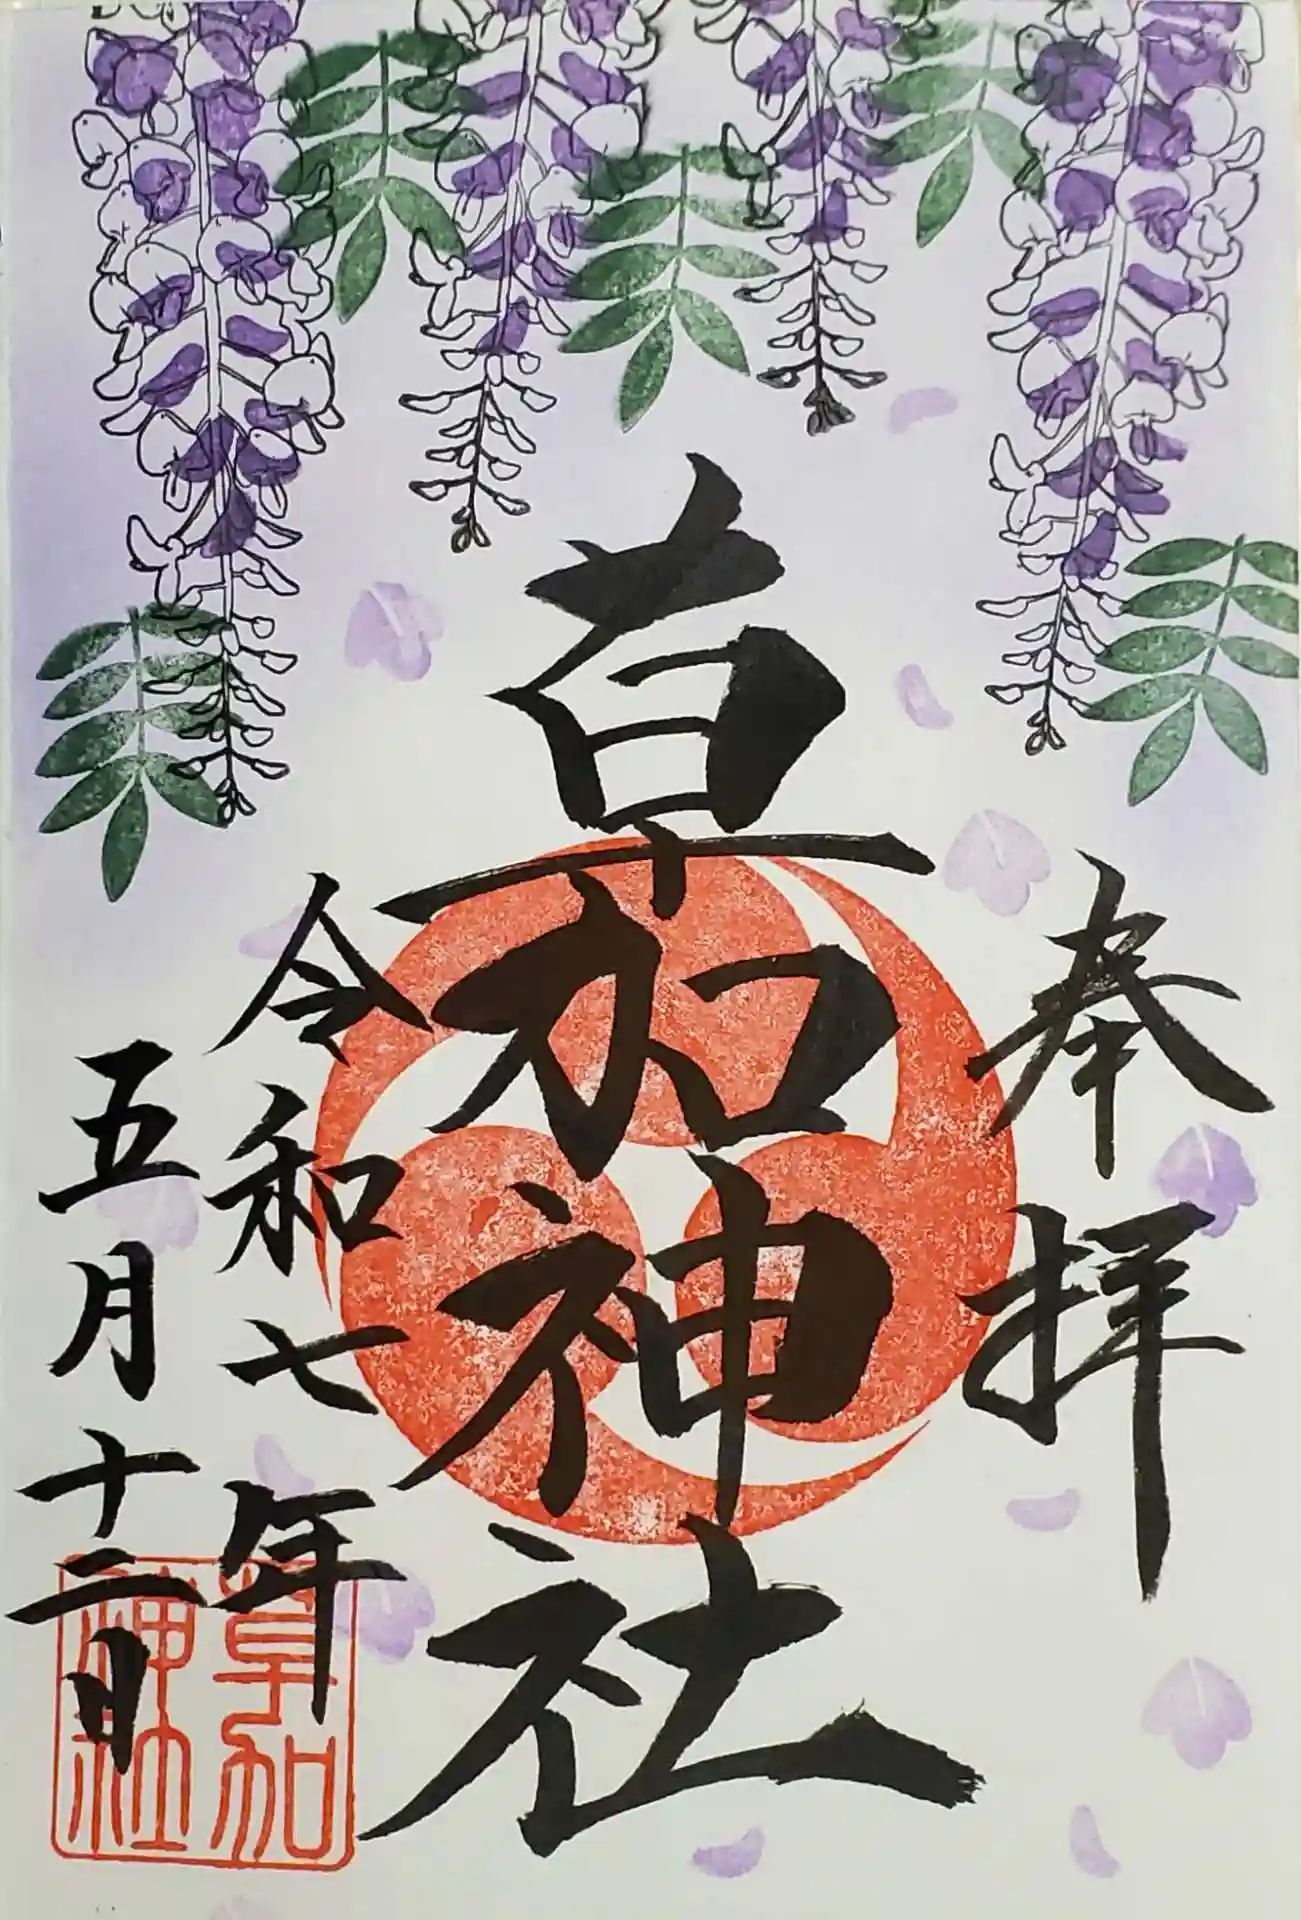 奉拝
草加神社
令和七年
五月十二日
草加
神社